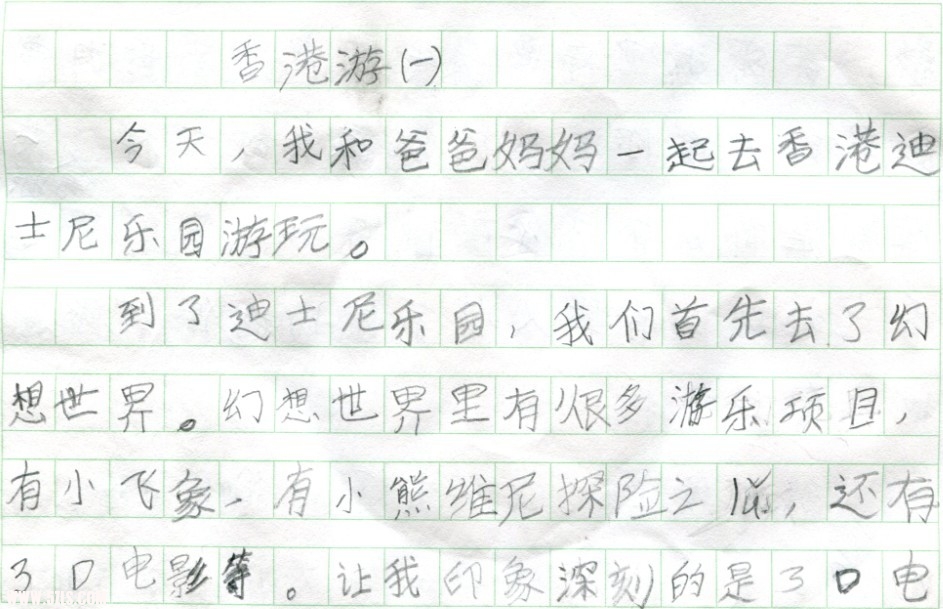 香港游(一)
今天，我和爸爸妈妈一起去香港迪
士尼乐园游玩。
到了迪士尼乐园，我们首先去了幻
想世界。幻想世界里有很多游乐项目，
有小飞象、有小熊维尼探险之旅，还有
3D电影等。让我印象深刻的是3D电